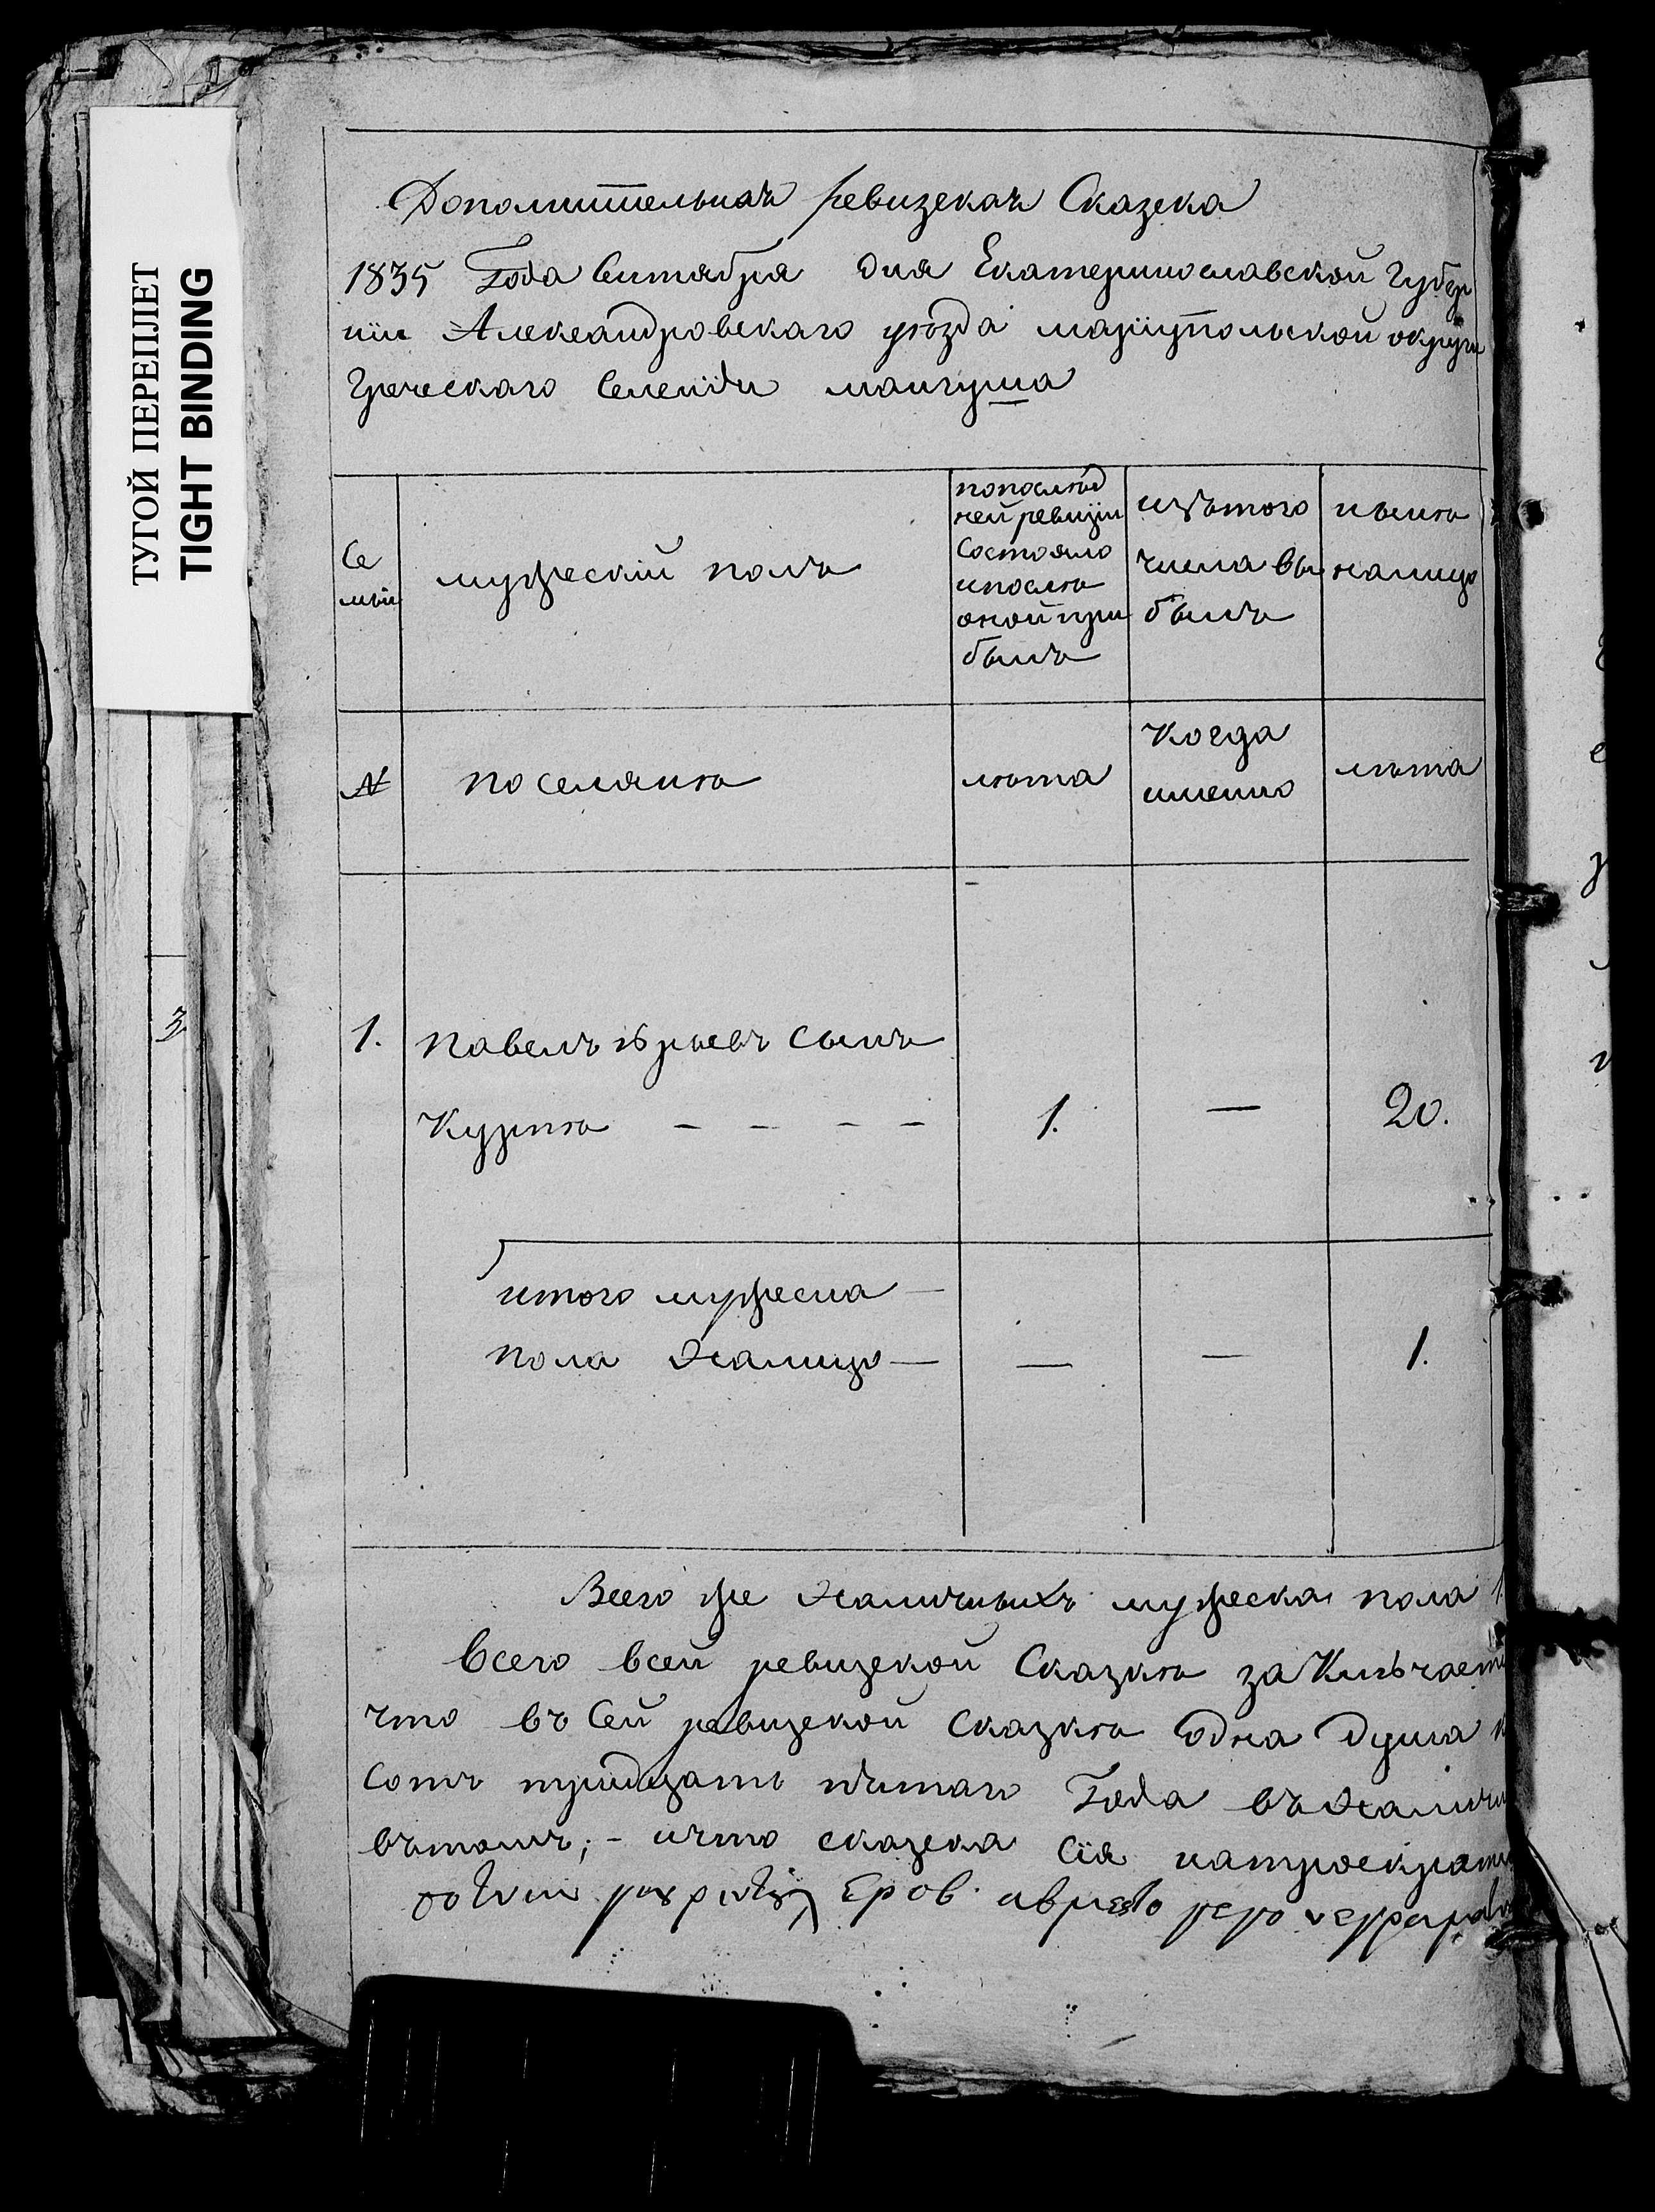 ТУГОЙ ПЕРЕПЛЕТ
TIGHT BINDING
Дополнительнаъ ревизскаъ Сказска
1835 Года Сентября дня Екатеринославской Губер
нии Александровскаго уѣзда мариупольской округи
Греческаго Селенiи мангуша
Се
мьи
мужескiй полъ
попослѣд
ней ревизiи
Состояло
ипослѣ
оной при
былъ
изътого
числа вы
былъ
нынѣ
налицо
№
поселянѣ
лѣта
Когда
именно
лѣта
1. Павелъ юрьевъ Сынъ
Куркчѣ - - - - 1. — 20.
итого мужеска —
пола Налицо — — — 1.
Всего же Наличныхъ мужеска пола 1.
Всего всей ревизской Сказкѣ заключает
что въ Сей ревизской Сказкѣ одна душа
сотъ тридцать пѣтаго Года въ Налич
вътомъ; - ичто сказска Сiя
3